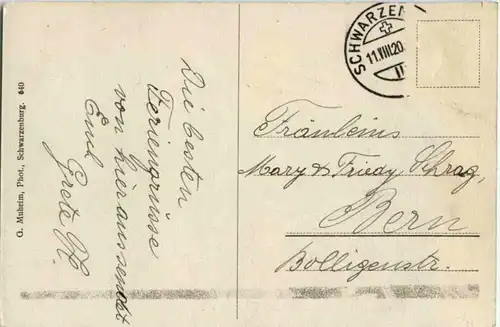 G. Muheim, Phot., Schwarzenburg. 640
Die besten
Feriengrüsse
von hier aus sendet
Euch
Grete
SCHWARZEN
11.VIII.20
Fräuleins
Mary & Friedy Schrag,
Bern
Bolligenstr.